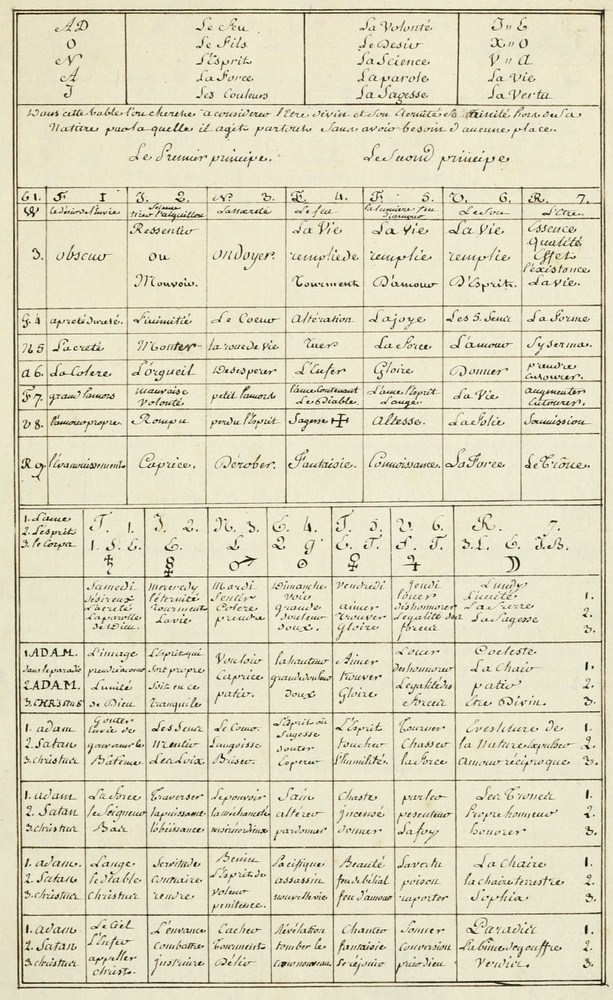 AD Le Feu La Volonté J=E
O Le Fils Le Desir X=O
N L'Esprit La Science V=A
A La Force La parole La Vie
I Les Couleurs La Sagesse La Vertu
Dans cette table l'on cherche a considerer l'Etre divin et Son hors de la
Nature par laquelle il agit partout Sans avoir besoin d'aucune place.
Le Premier principe. Le Second principe
61. F 1 I. 2. N. 3. E. 4. F. 5. U. 6. R. 7.
L'acreté Le feu La lumiere feu d'amour Le Son L'Etre.
3. obscur Ressentir ou Mouvoir. ondoyer. La Vie remplie de Tourment La Vie remplie D'amour La Vie remplie D'Esprit. Essence Qualité Effet l'existance La Vie.
G. 4 L'inimitié Le Coeur Altération La joye Les 5. Sens La Forme
N 5 L'acreté Monter la roue de Vie Tuer La Force L'amour Systerma.
a 6. La Colere L'orgueil Desesperer L'Enfer Gloire Donner prendre
F 7. mauvaise Volonté L'ame contenant Le Diable. L'ame l'Esprit L'ange. La Vie augmenter
V 8. l'amour propre. Rompu perdu l'Esprit Sagesse ✠ Altesse. La folie Soumission
R 9. l'évanouissement Caprice. Dérober. Fantaisie. Connoissance. La Force Le Trône.
1. L'ame T. 1. I. 2. N. 3. E. 4. T. 5. U 6. R. 7.
2. L'esprit 1. S. E. E. L 2 9 E. T. F. T. 3. L. E. I. B.
3. le Corps ♄ ☿ ♂ ☉ ♀ ♃ ☽
Samedi mercredy Mardi Dimanche Vendredi Jeudi Lundy
désireux l'eternité Sentir Voie louer L'unité 1.
L'acreté Tourment Colere grande aimer deshonorer La Terre 2.
La parolle La vie prendre douleur trouver L'egalité des La Sagesse
de Dieu. doux. Gloire forces 3.
1. ADAM. L'image L'Esprit qui Vouloir la hauteur Aimer Louer Coeleste 1.
dans le paradis Soit propre Caprice grande douleur trouver deshonorer La Chair
2. ADAM. L'unité Soit en ce patir. doux Gloire L'egalité des patir 2.
3. CHRISTUS de Dieu tranquile forces Etre Divin. 3.
1. adam Gouter Les Sens Le Coeur. L'Esprit ou Sagesse L'Esprit Tourner 1.
2. Satan envie de gouverner le mentir L'angoisse douter toucher Chasser la Nature 2.
3. christus Batême. Les Loix Briser. Esperer l'humilité. la force Amour réciproque 3.
1. adam La Force Traverser Le pouvoir Sain Chaste parler Les Trones 1.
2. Satan le Seigneur la puissance la méchanceté altérer insensé pesenteur Propre honneur 2.
3. christus Bas l'obéissance miséricordieux pardonner donner La foy honorer 3.
1. adam. L'ange Servitude Benin Pacifique Beauté La vertu La Chaire 1.
2. Satan le diable contraire L'Esprit de voleur assassin feu de Bélial poison la chaire terrestre 2.
3. christus Christus rendre penitence. nouvelle vie feu d'amour raporter Sophia 3.
1. adam Le Ciel L'enfance Cacher Révélation Chanter Sonner Paradis 1.
2. Satan L'Enfer combattre Tourment tomber le fantaisie conversion L'abime de gouffre 2.
3. christus appeller Christ. Délié Se réjouir prier Dieu 3.